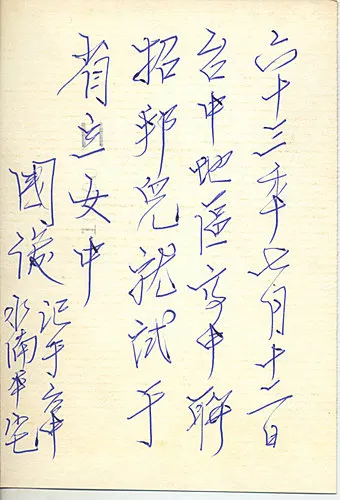 六十三年七月十二日
台中地區高中聯
招邦兒就試于
省立女中
國
記于台中
水湳平宅